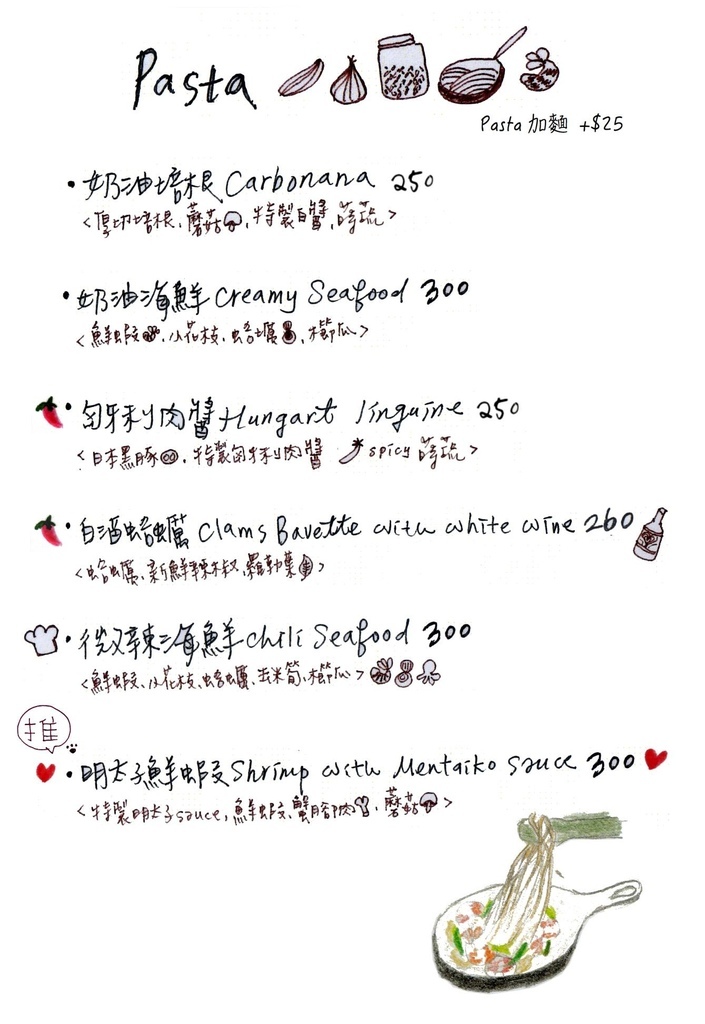 Pasta
Pasta 加麵 +$25
• 奶油培根 Carbonana 250
<厚切培根、蘑菇、特製白醬、時蔬>
• 奶油海鮮 Creamy Seafood 300
<鮮蝦、小花枝、蛤蠣、櫛瓜>
• 匈牙利肉醬 Hungart linguine 250
<日本黑豚、特製匈牙利肉醬 spicy 時蔬>
• 白酒蛤蠣 Clams Bavette with white wine 260
<蛤蠣、新鮮辣椒、羅勒葉>
• 微辣海鮮 chili Seafood 300
<鮮蝦、小花枝、蛤蠣、玉米筍、櫛瓜>
推
• 明太子鮮蝦 Shrimp with Mentaiko sauce 300
<特製明太子sauce, 鮮蝦、蟹腳肉、蘑菇>